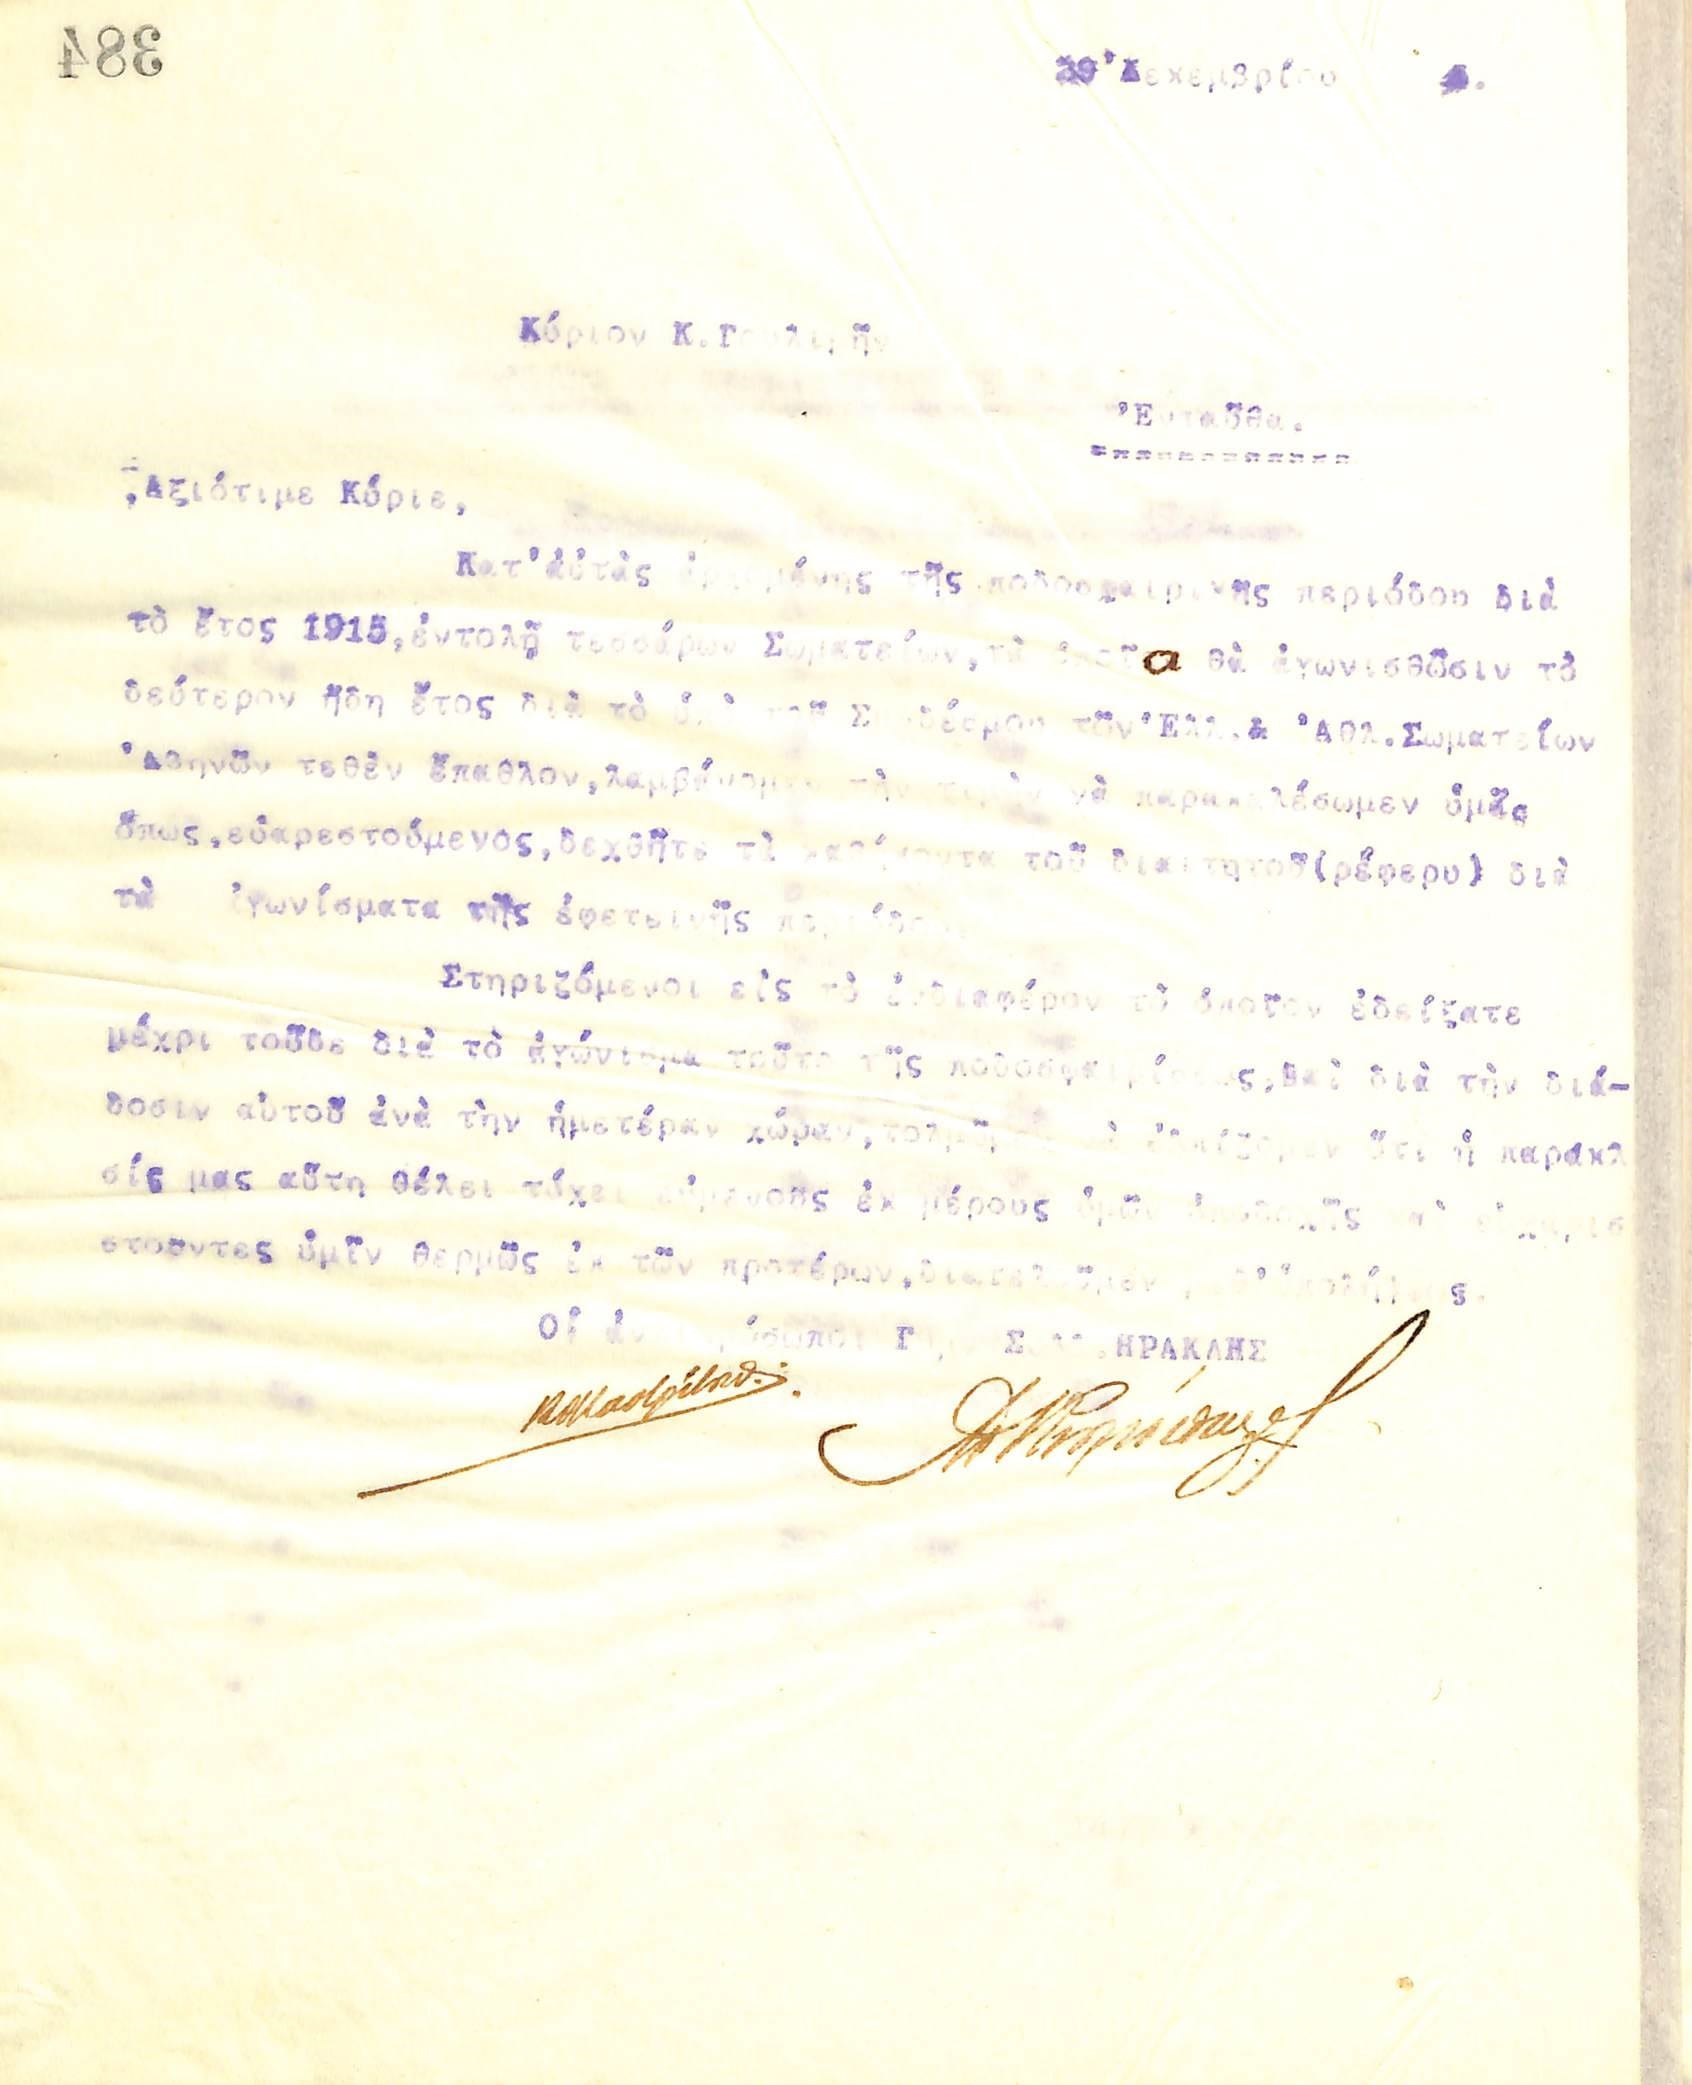 384
Δεκεμβρίου
Κύριον Κ.
Ἐνταῦθα.
Ἀξιότιμε Κύριε,
Κατ'αὐτὰς τῆς ποδοσφαιρικῆς περιόδου διὰ
τὸ ἔτος 1915,ἐντολῇ τεσσάρων Σωματείων,τὰ ὁποῖα θὰ ἀγωνισθῶσιν τὸ
δεύτερον ἤδη ἔτος διὰ τὸ ὑπὸ τοῦ Συνδέσμου τῶν Ἑλλ.& Ἀθλ.Σωματείων
Ἀθηνῶν τεθὲν ἔπαθλον,λαμβάνομεν τὴν τιμὴν νὰ παρακαλέσωμεν ὑμᾶς
ὅπως,εὐαρεστούμενος,δεχθῆτε τὰ καθήκοντα τοῦ διαιτητοῦ(ρέφερυ) διὰ
τὰ ἀγωνίσματα τῆς ἐφετεινῆς περιόδου.
Στηριζόμενοι εἰς τὸ ἐνδιαφέρον τὸ ὁποῖον ἐδείξατε
μέχρι τοῦδε διὰ τὸ ἀγώνισμα τοῦτο τῆς ποδοσφαιρίσεως,καὶ διὰ τὴν διά-
δοσιν αὐτοῦ ἀνὰ τὴν ἡμετέραν χώραν,τολμῶμεν νὰ ἐλπίζομεν ὅτι ἡ παράκλ
σίς μας αὕτη θέλει τύχει εὐμενοῦς ἐκ μέρους ὑμῶν ὑποδοχῆς καὶ εὐχαρισ
στοῦντες ὑμῖν θερμῶς ἐκ τῶν προτέρων,διατελοῦμεν μεθ'ὑπολήψεως.
Οἱ ἀντιπρόσωποι Γ Σ ΗΡΑΚΛΗΣ